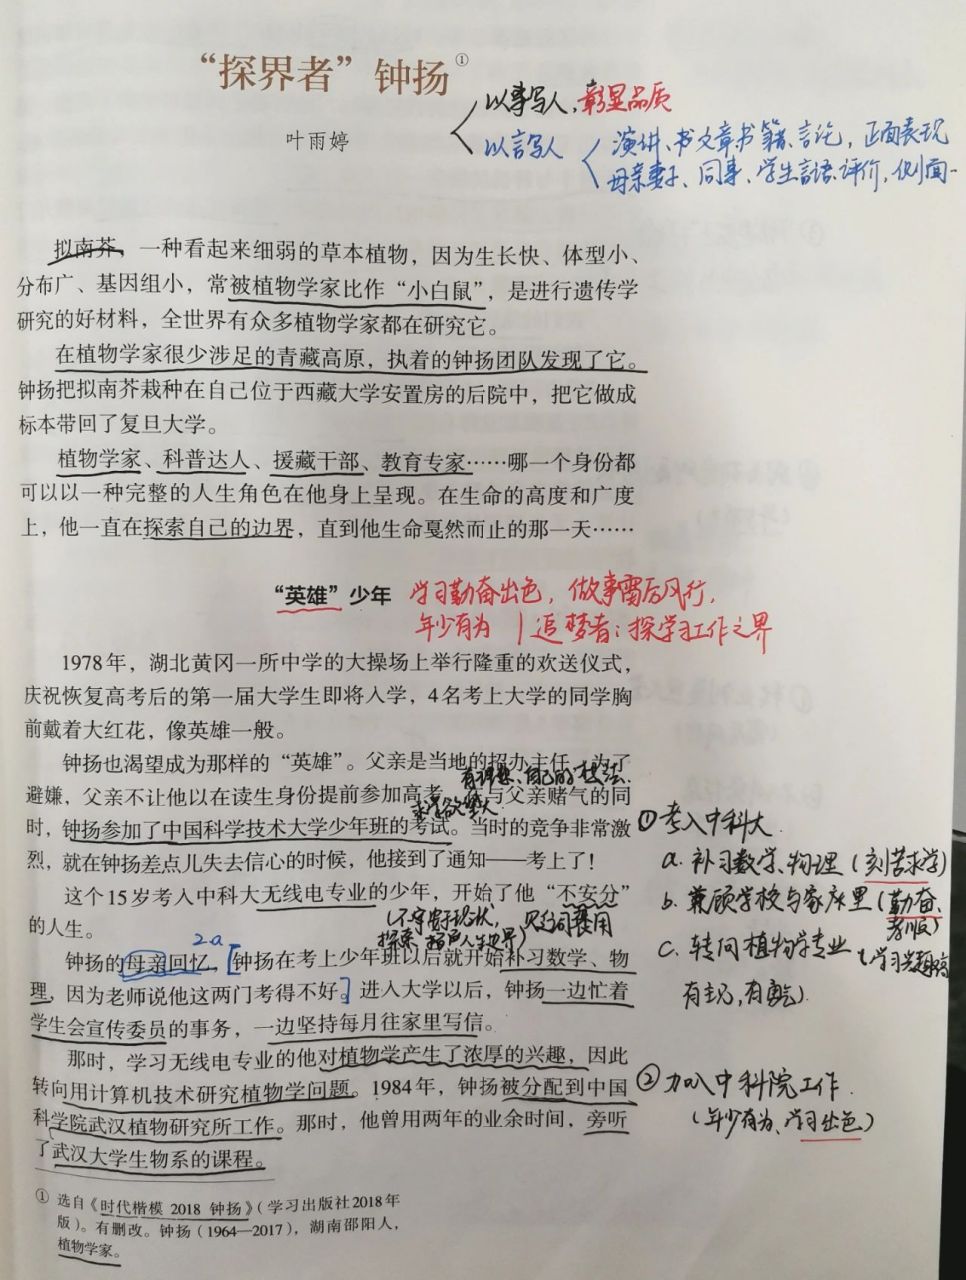 “探界者”钟扬①
叶雨婷
以事写人，彰显品质
以言写人
演讲、书文章书籍、言论，正面表现
母亲妻子、同事、学生言语、评价，侧面
拟南芥，一种看起来细弱的草本植物，因为生长快、体型小、
分布广、基因组小，常被植物学家比作“小白鼠”，是进行遗传学
研究的好材料，全世界有众多植物学家都在研究它。
在植物学家很少涉足的青藏高原，执着的钟扬团队发现了它。
钟扬把拟南芥栽种在自己位于西藏大学安置房的后院中，把它做成
标本带回了复旦大学。
植物学家、科普达人、援藏干部、教育专家……哪一个身份都
可以以一种完整的人生角色在他身上呈现。在生命的高度和广度
上，他一直在探索自己的边界，直到他生命戛然而止的那一天……
“英雄”少年
学习勤奋出色，做事雷厉风行，
年少有为 | 追梦者：探学习工作之界
1978年，湖北黄冈一所中学的大操场上举行隆重的欢送仪式，
庆祝恢复高考后的第一届大学生即将入学，4名考上大学的同学胸
前戴着大红花，像英雄一般。
钟扬也渴望成为那样的“英雄”。父亲是当地的招办主任，为了
有理想、自己的
避嫌，父亲不让他以在读生身份提前参加高考，与父亲赌气的同
时，钟扬参加了中国科学技术大学少年班的考试。当时的竞争非常激
烈，就在钟扬差点儿失去信心的时候，他接到了通知——考上了！
①考入中科大
a. 补习数学、物理（刻苦求学）
b. 兼顾学校与家庭里（勤奋、孝顺）
c. 转向植物学专业
学习兴趣高
有主见，
这个15岁考入中科大无线电专业的少年，开始了他“不安分”
的人生。
（不守旧于现状，
探索、拓展人生边界）
2a
钟扬的母亲回忆，钟扬在考上少年班以后就开始补习数学、物
理，因为老师说他这两门考得不好。进入大学以后，钟扬一边忙着
学生会宣传委员的事务，一边坚持每月往家里写信。
那时，学习无线电专业的他对植物学产生了浓厚的兴趣，因此
转向用计算机技术研究植物学问题。1984年，钟扬被分配到中国
科学院武汉植物研究所工作。那时，他曾用两年的业余时间，旁听
了武汉大学生物系的课程。
②加入中科院工作
（年少有为、学习出色）
① 选自《时代楷模 2018 钟扬》（学习出版社2018年
版）。有删改。钟扬（1964—2017），湖南邵阳人，
植物学家。